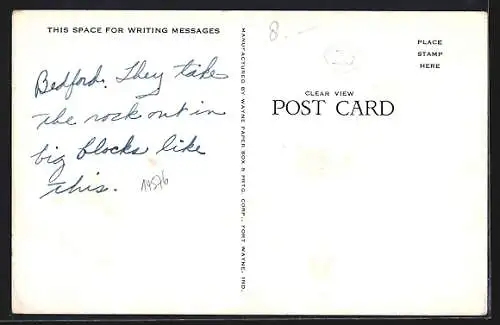 THIS SPACE FOR WRITING MESSAGES
Bedford. They take
the rock out in
big blocks like
this.
14576
MANUFACTURED BY WAYNE PAPER BOX & PRTG. CORP., FORT WAYNE, IND.
8.—
PLACE
STAMP
HERE
CLEAR VIEW
POST CARD